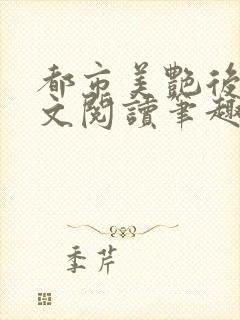 都市美艷後
文閱讀筆趣
季芹